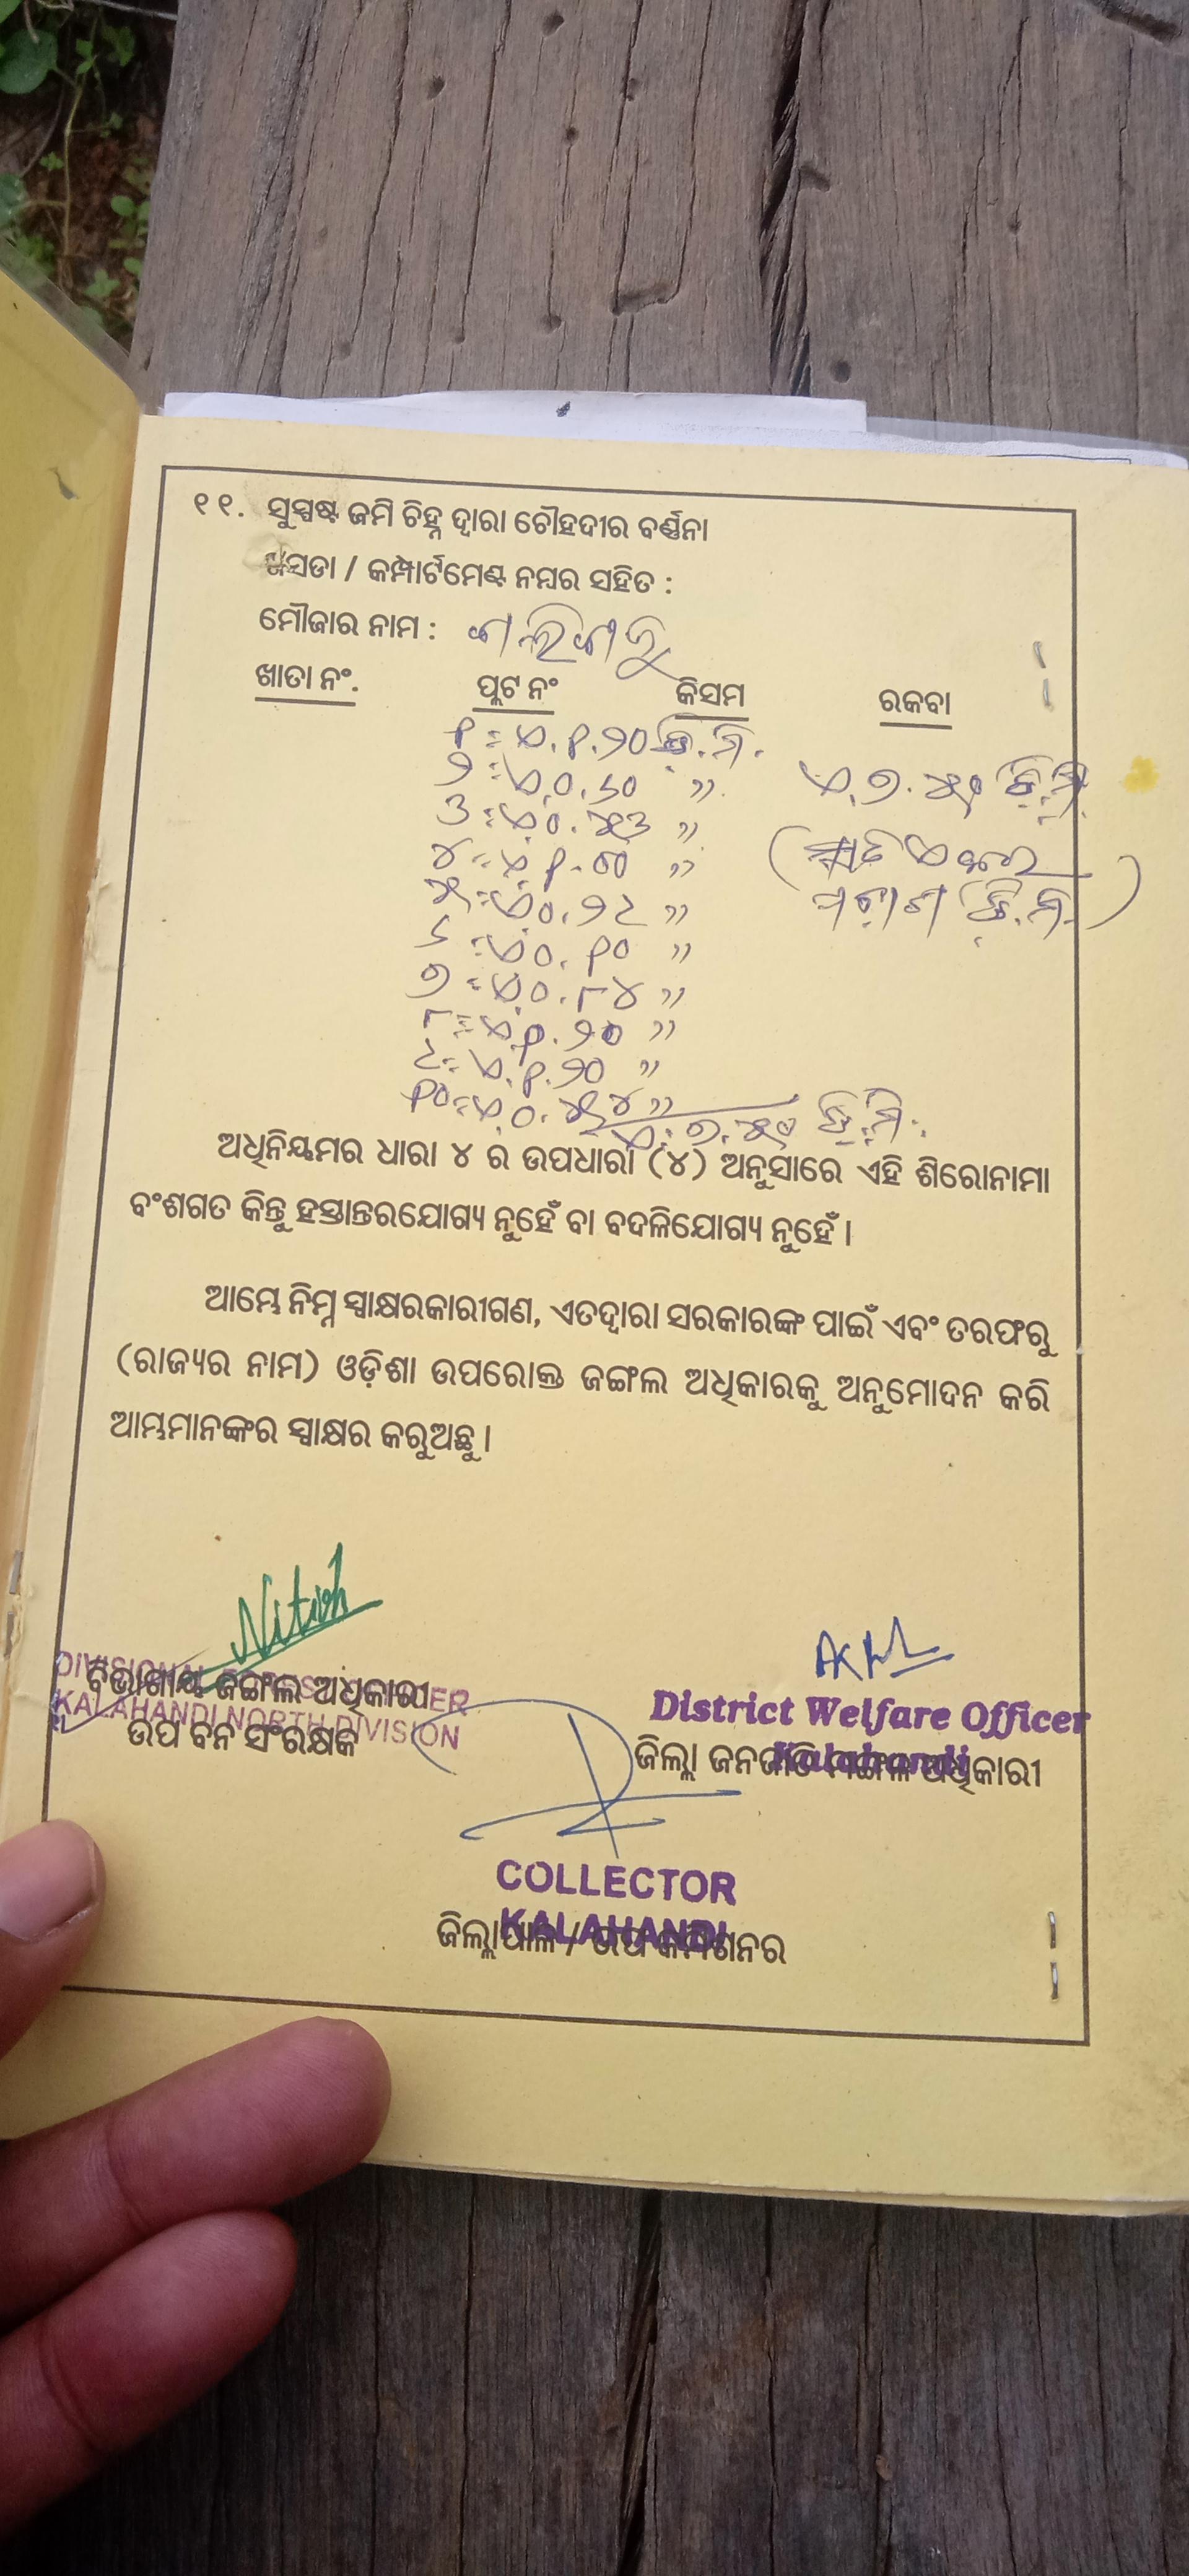 ୧୧. ସୁସ୍ପଷ୍ଟ ଜମି ଚିହ୍ନ ଦ୍ୱାରା ଚୌହଦୀର ବର୍ଣ୍ଣନା
ଖସଡା / କମ୍ପାର୍ଟମେଣ୍ଟ ନମ୍ବର ସହିତ :
ମୌଜାର ନାମ :
ଖାତା ନଂ. ପ୍ଲଟ ନଂ କିସମ ରକବା
୧ = ଏ.୧.୨୦ ଡି.ମି.
୨ = ଏ.୦.୬୦ " ଏ.୭.୫୧ ଡି.ମି.
୩ = ଏ.୦.୫୩ "
୪ = ଏ.୧.୦୦ " (ସାତ ଏକର
୫ = ଏ.୦.୨୯ " ଡି.ମି.)
୬ = ଏ.୦.୧୦ "
୭ = ଏ.୦.୮୪ "
୮ = ଏ.୧.୨୦ "
୯ = ଏ.୧.୨୦ "
୧୦ = ଏ.୦.୫୪ "
ଏ.୭.୫୧ ଡି.ମି.
ଅଧିନିୟମର ଧାରା ୪ ର ଉପଧାରା (୪) ଅନୁସାରେ ଏହି ଶିରୋନାମା
ବଂଶଗତ କିନ୍ତୁ ହସ୍ତାନ୍ତରଯୋଗ୍ୟ ନୁହେଁ ବା ବଦଳିଯୋଗ୍ୟ ନୁହେଁ ।
ଆମ୍ଭେ ନିମ୍ନ ସ୍ୱାକ୍ଷରକାରୀଗଣ, ଏତଦ୍ୱାରା ସରକାରଙ୍କ ପାଇଁ ଏବଂ ତରଫରୁ
(ରାଜ୍ୟର ନାମ) ଓଡ଼ିଶା ଉପରୋକ୍ତ ଜଙ୍ଗଲ ଅଧିକାରକୁ ଅନୁମୋଦନ କରି
ଆମ୍ଭମାନଙ୍କର ସ୍ୱାକ୍ଷର କରୁଅଛୁ ।
Nitish
DIVISIONAL FOREST OFFICER
ବିଭାଗୀୟ ଜଙ୍ଗଲ ଅଧିକାରୀ
KALAHANDI NORTH DIVISION
ଉପ ବନ ସଂରକ୍ଷକ
District Welfare Officer
Kalahandi
ଜିଲ୍ଲା ଜନଜାତି ମଙ୍ଗଳ ଅଧିକାରୀ
COLLECTOR
KALAHANDI
ଜିଲ୍ଲାପାଳ / ଉପ କମିଶନର